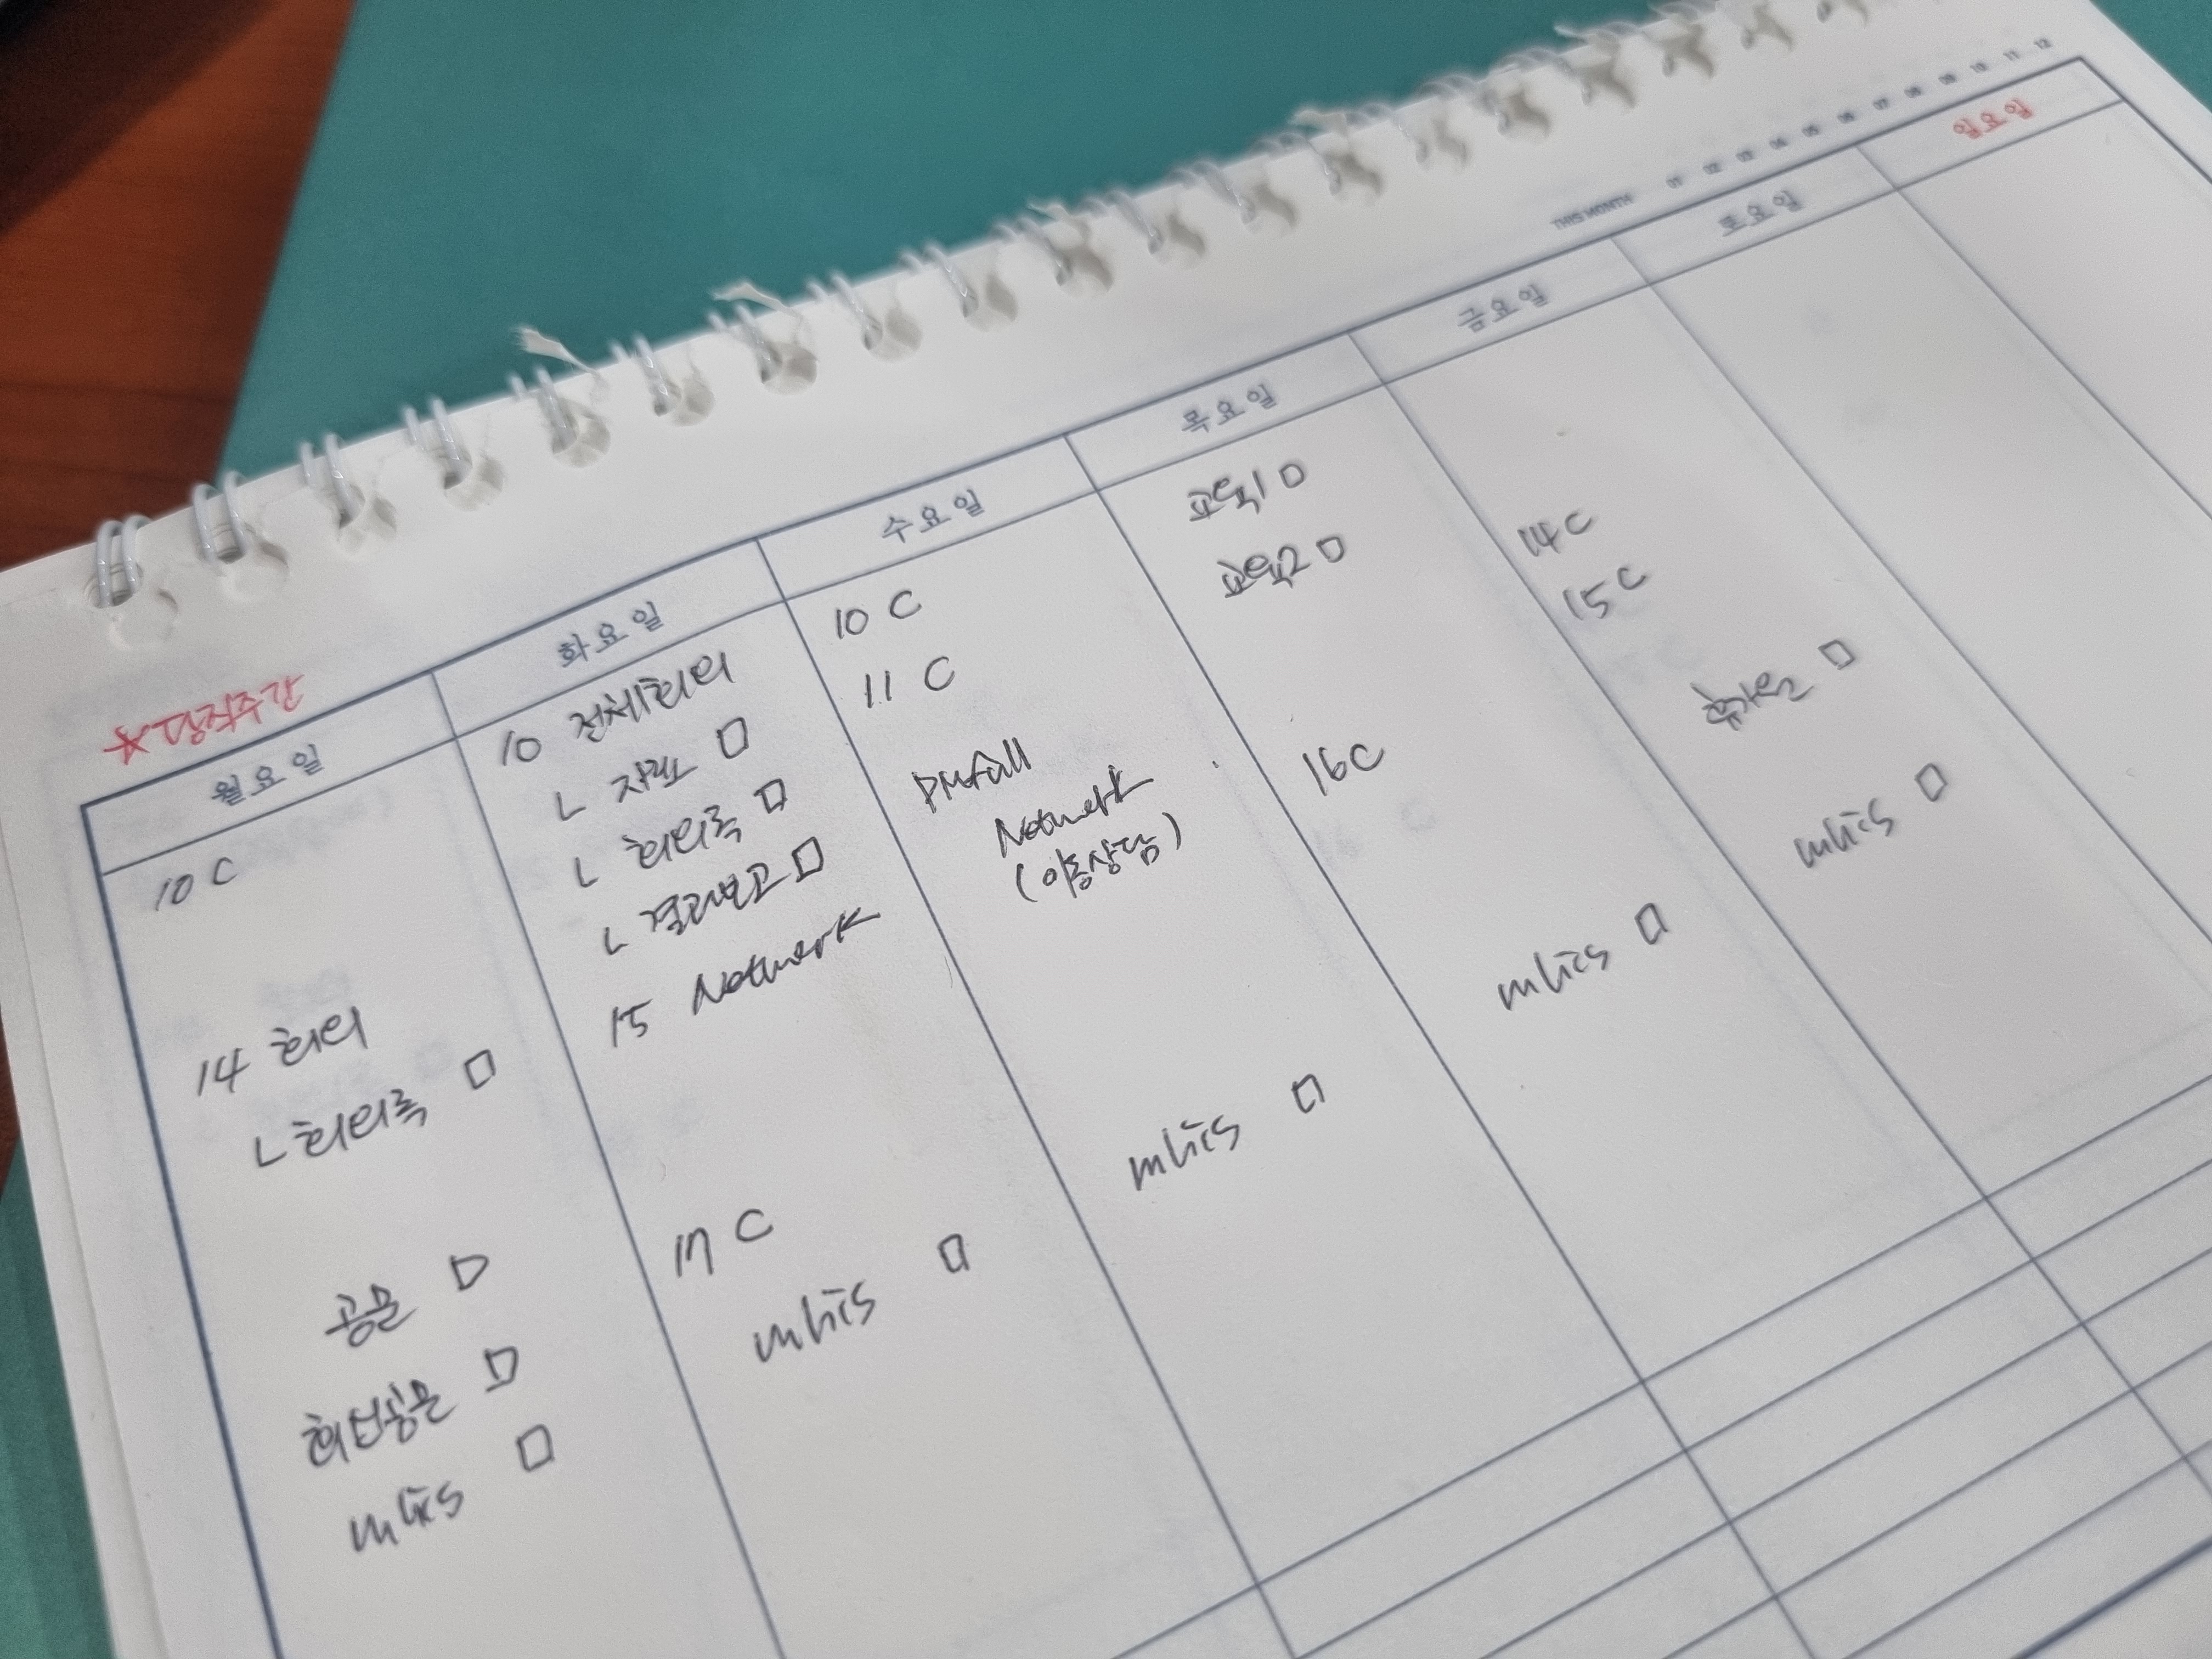 THIS MONTH 01 02 03 04 05 06 07 08 09 10 11 12
★당직주간
월요일
10 C
14 회의
ㄴ 회의록 □
공문 □
회신공문 □
mhis □
화요일
10 전체회의
ㄴ 자료 □
ㄴ 회의록 □
ㄴ 결과보고 □
15 Network
17 C
mhis □
수요일
10 C
11 C
PM full
Network
(이동상담)
mhis □
목요일
교육1 □
교육2 □
16 C
mhis □
금요일
14 C
15 C
휴가원 □
mhis □
토요일
일요일